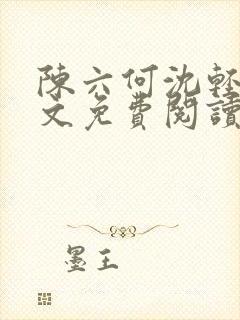 陳六何沈輕
文免費閱讀
墨王